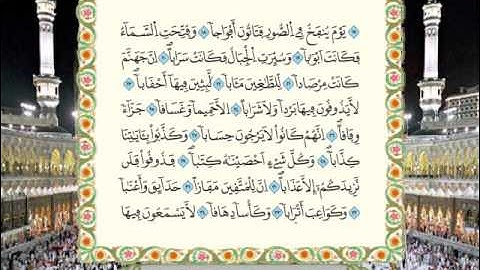 يَوْمَ يُنفَخُ فِي الصُّورِ فَتَأْتُونَ أَفْوَاجًا ۝ وَفُتِحَتِ السَّمَاءُ
فَكَانَتْ أَبْوَابًا ۝ وَسُيِّرَتِ الْجِبَالُ فَكَانَتْ سَرَابًا ۝ إِنَّ جَهَنَّمَ
كَانَتْ مِرْصَادًا ۝ لِلطَّاغِينَ مَآبًا ۝ لَابِثِينَ فِيهَا أَحْقَابًا ۝
لَا يَذُوقُونَ فِيهَا بَرْدًا وَلَا شَرَابًا ۝ إِلَّا حَمِيمًا وَغَسَّاقًا ۝ جَزَاءً
وِفَاقًا ۝ إِنَّهُمْ كَانُوا لَا يَرْجُونَ حِسَابًا ۝ وَكَذَّبُوا بِآيَاتِنَا
كِذَّابًا ۝ وَكُلَّ شَيْءٍ أَحْصَيْنَاهُ كِتَابًا ۝ فَذُوقُوا فَلَن
نَّزِيدَكُمْ إِلَّا عَذَابًا ۝ إِنَّ لِلْمُتَّقِينَ مَفَازًا ۝ حَدَائِقَ وَأَعْنَابًا
۝ وَكَوَاعِبَ أَتْرَابًا ۝ وَكَأْسًا دِهَاقًا ۝ لَا يَسْمَعُونَ فِيهَا